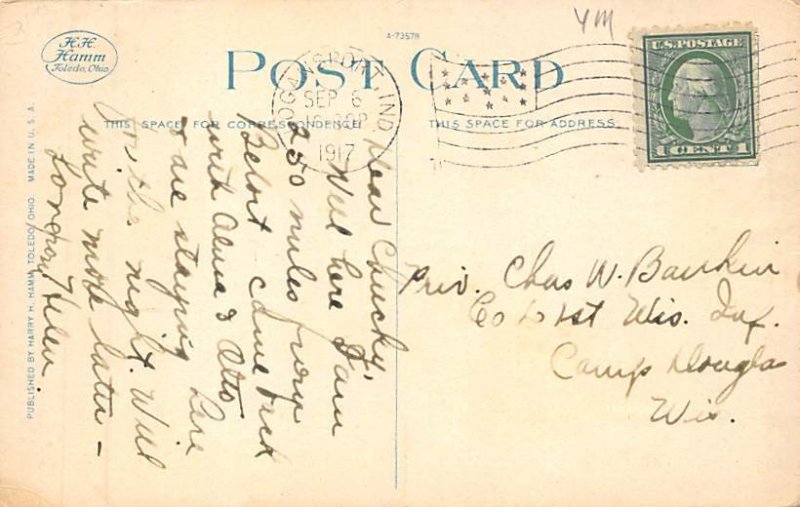 YM
H.H.
Hamm
Toledo, Ohio
A-73578
POST CARD
LOGANSPORT, IND.
SEP 6
1917
U.S. POSTAGE
1 CENT 1
THIS SPACE FOR CORRESPONDENCE
THIS SPACE FOR ADDRESS
Dear Chucky,
Well here I am
250 miles from
Beloit came back
with Alma & Otto
& are staying here
for the night. Will
write more later –
Helen.
Priv. Chas W.
Co 1st Wis. Inf.
Camp Douglas
Wis.
PUBLISHED BY HARRY H. HAMM, TOLEDO, OHIO. MADE IN U.S.A.